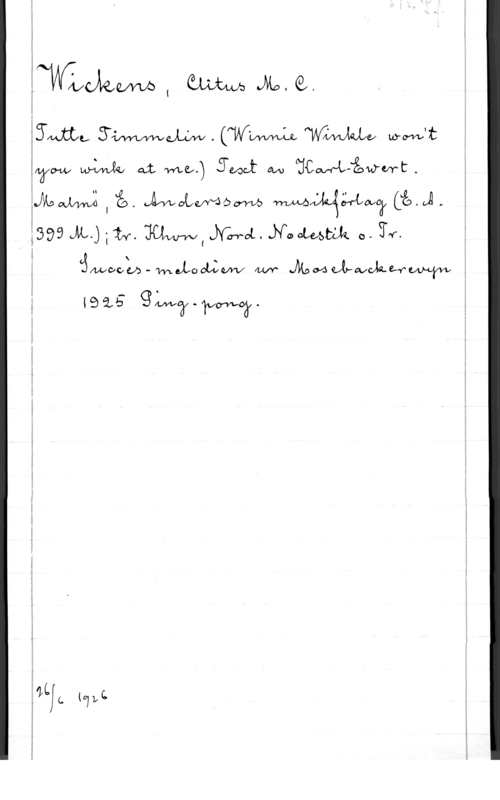 Wickens, Clitus M. C.
Tutte Timmelin. (Winnie Winkle won't
you wink at me.) Text av Karl-Ewert.
Malmö, E. Anderssons musikförlag (E. A.
399 M.); tr. Khvn, Nord. Nodestik o. Tr.
Succès-melodien ur Mosebackerevyn
1925 Ping-pong.
26/6 1926